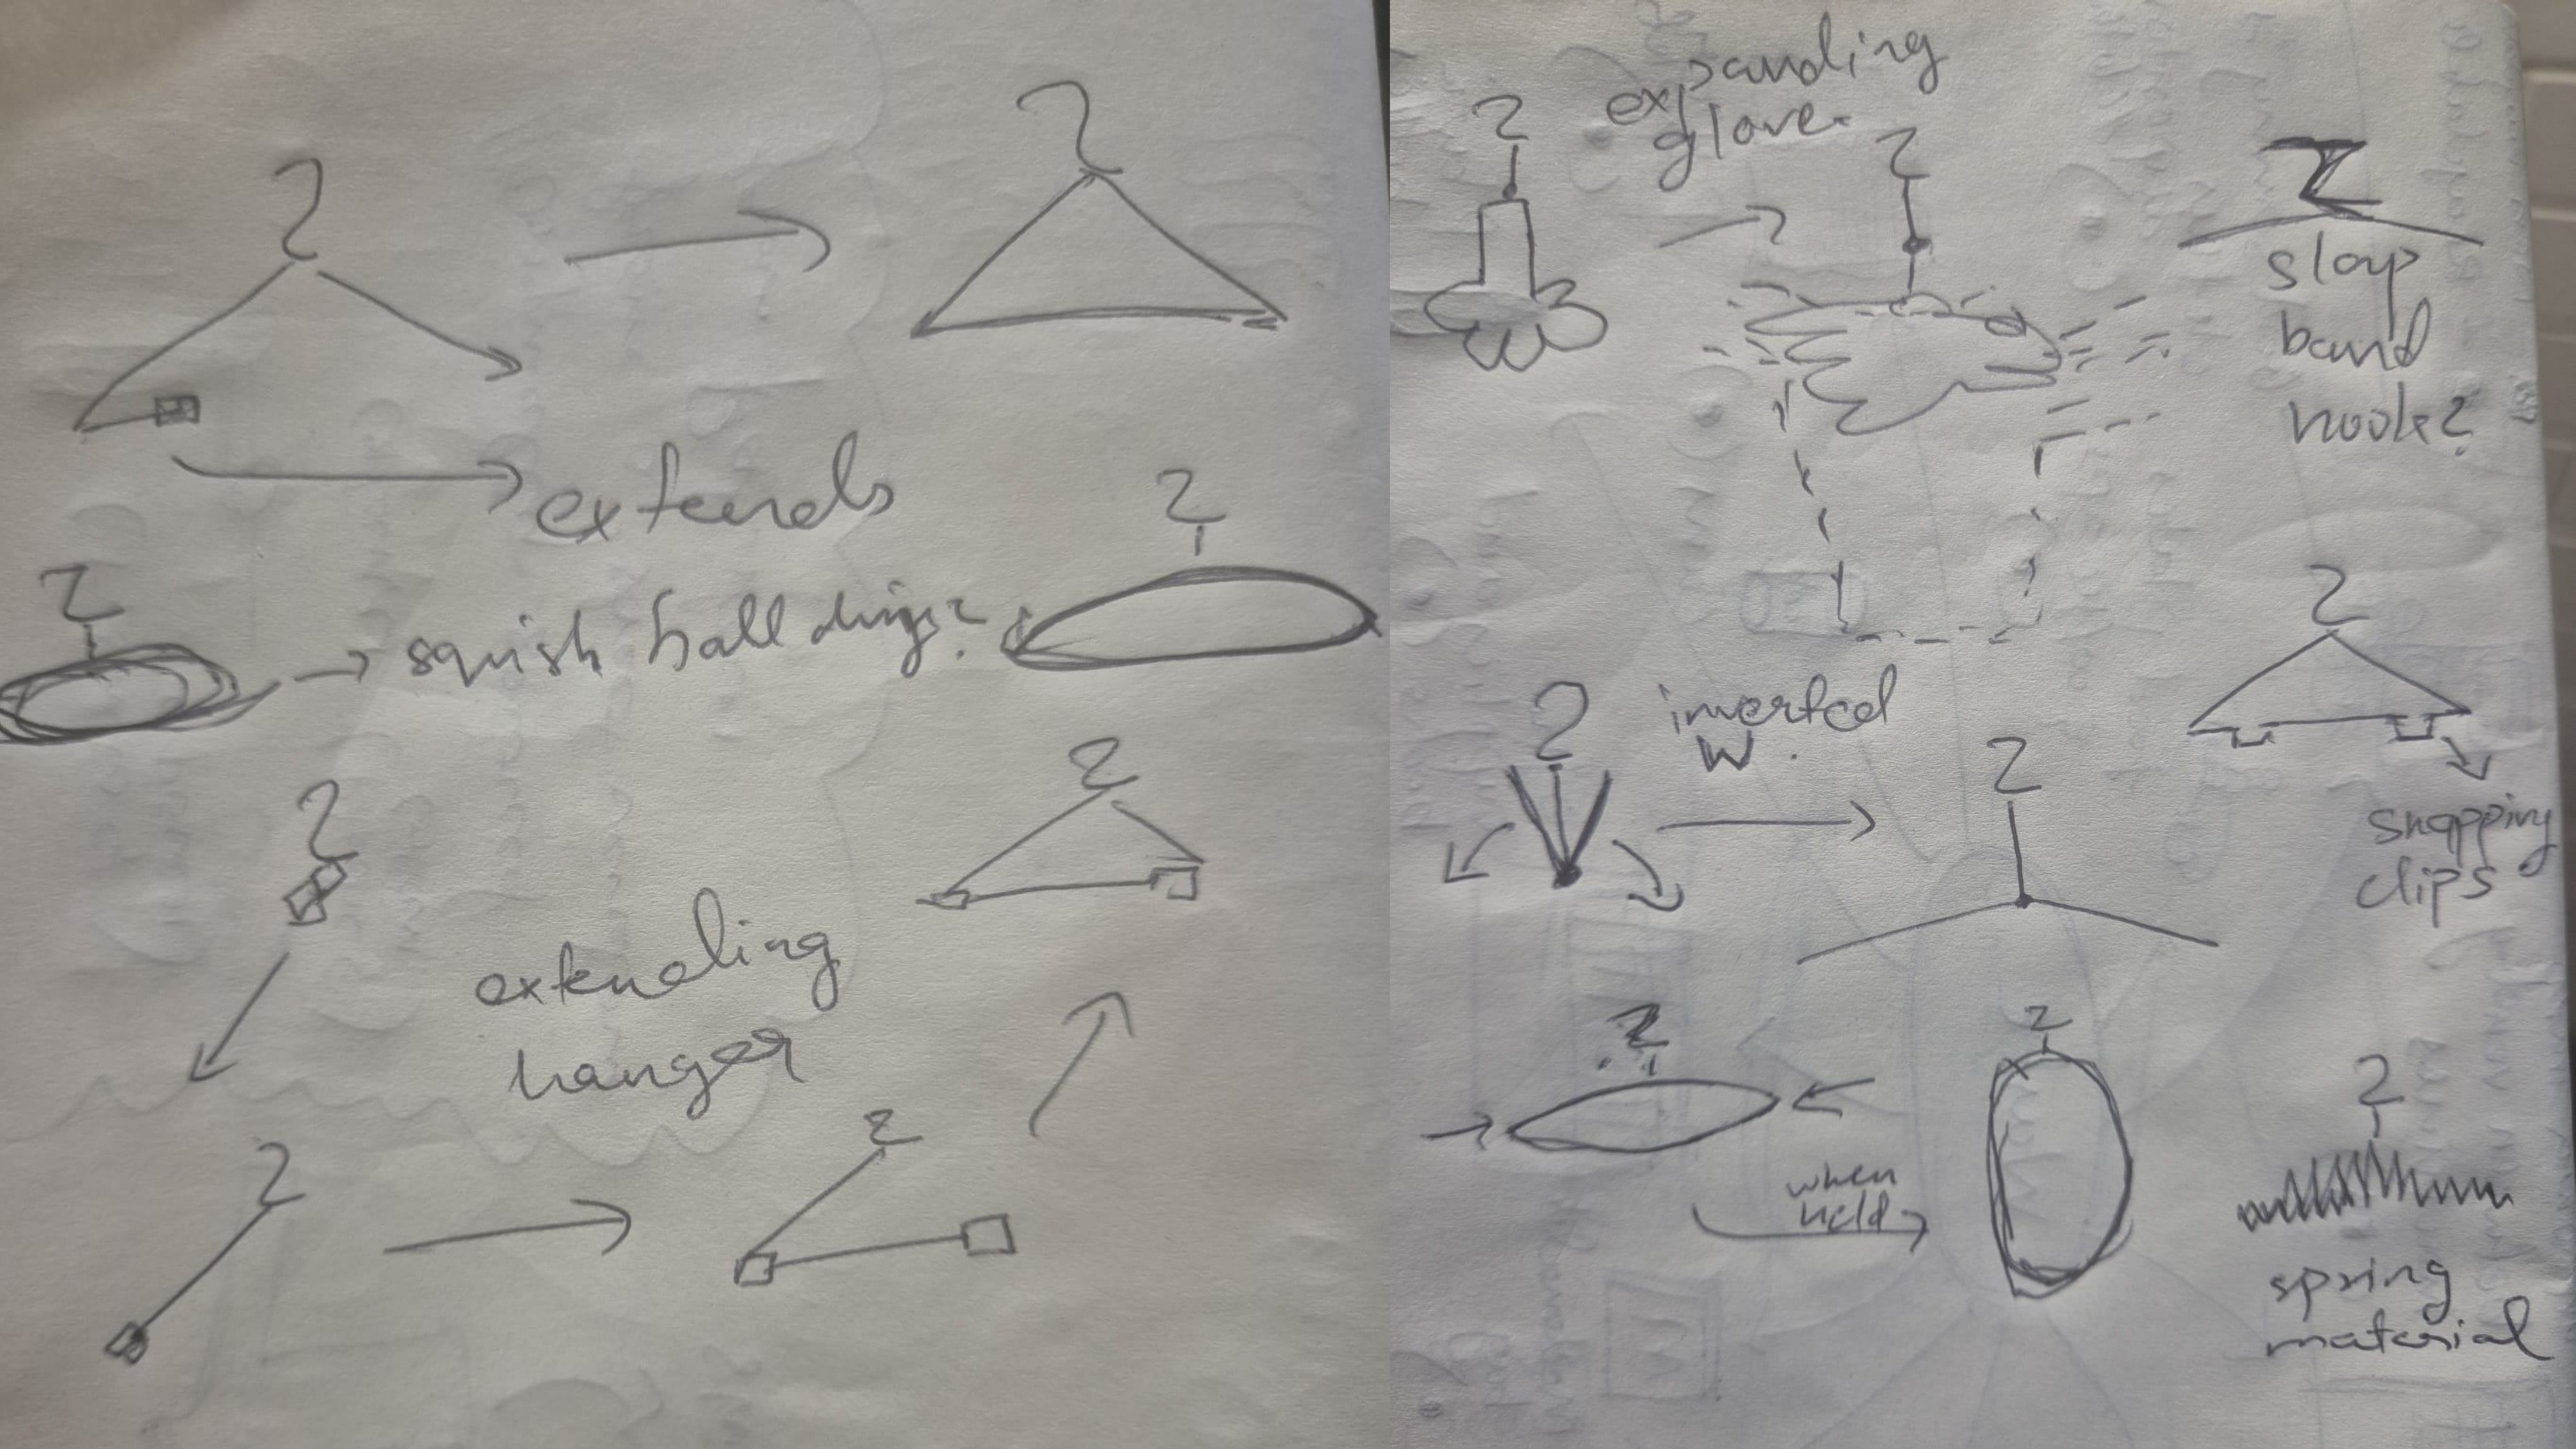 extends
squish ball dings?
extending
hanger
expanding
glove
slap
band
hook?
inverted
W
snapping
clips
when
held
spring
material